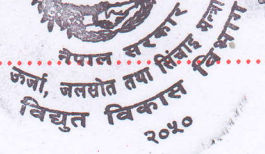 नेपाल सरकार
ऊर्जा, जलस्रोत तथा सिंचाइ मन्त्रा
विद्युत विकास विभाग
२०५०